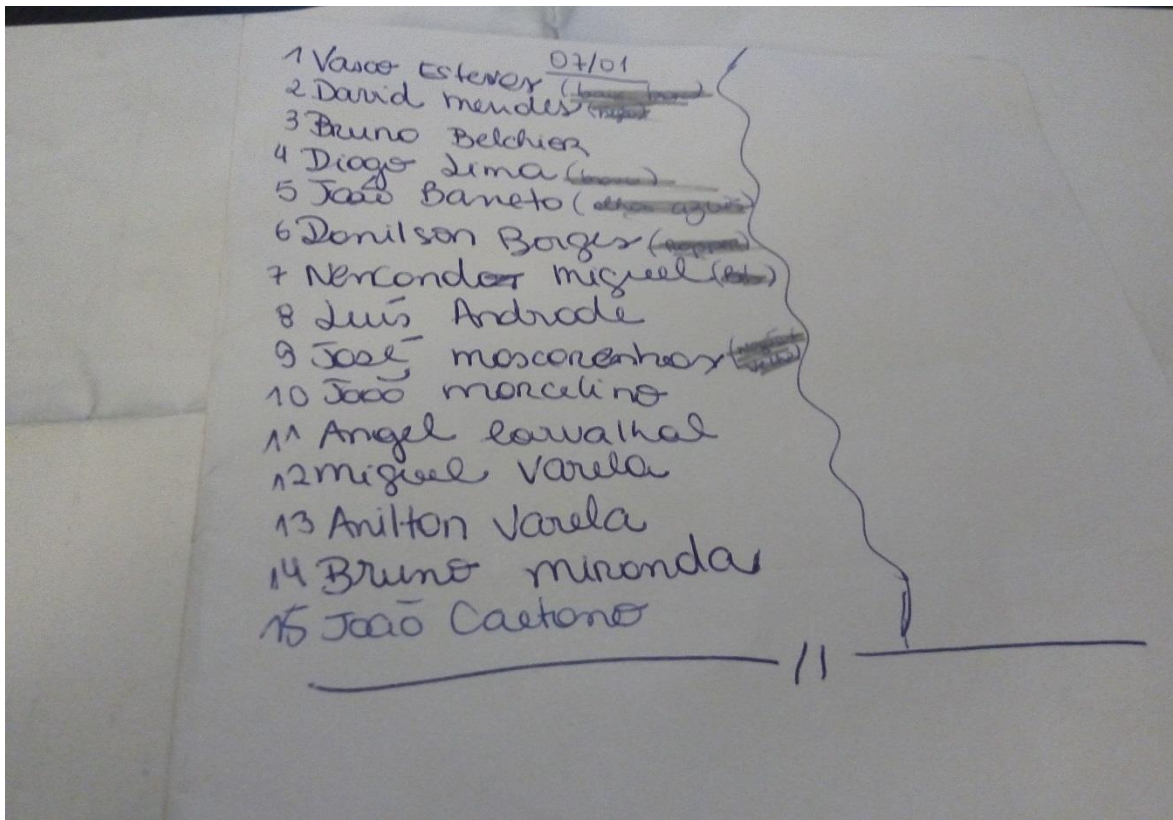 07/01
1 Vasco Esteves
2 David mendes
3 Bruno Belchior
4 Diogo Lima
5 João Barreto (olhos azuis)
6 Donilson Borges
7 Nercondor miguel
8 Luís Andrade
9 José moscarenhas
10 João marcelino
11 Angel Carvalhal
12 miguel Varela
13 Anilton Varela
14 Bruno miranda
15 João Caetano
//